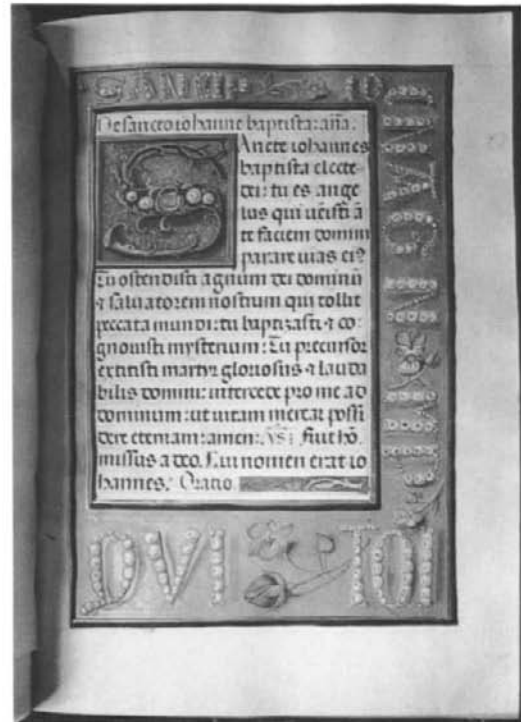 De sancto iohanne baptista: an̄a.
SAncte iohannes
baptista electe
dei: tu es ange
lus qui uēisti ā
te faciem domini
parare uias ei9
Tu ostendisti agnum dei dominū
⁊ saluatorem nostrum qui tollit
peccata mundi: tu baptizasti ⁊ co-
gnouisti mysterium: Tu precursor
extitisti martyr gloriosus ⁊ lauda
bilis domini: intercede pro me ad
dominum: ut uitam merear possi
dere eternam: amen. Vs: Fuit hō
missus a deo. Cui nomen erat io
hannes. Oratio.
DVI TOI